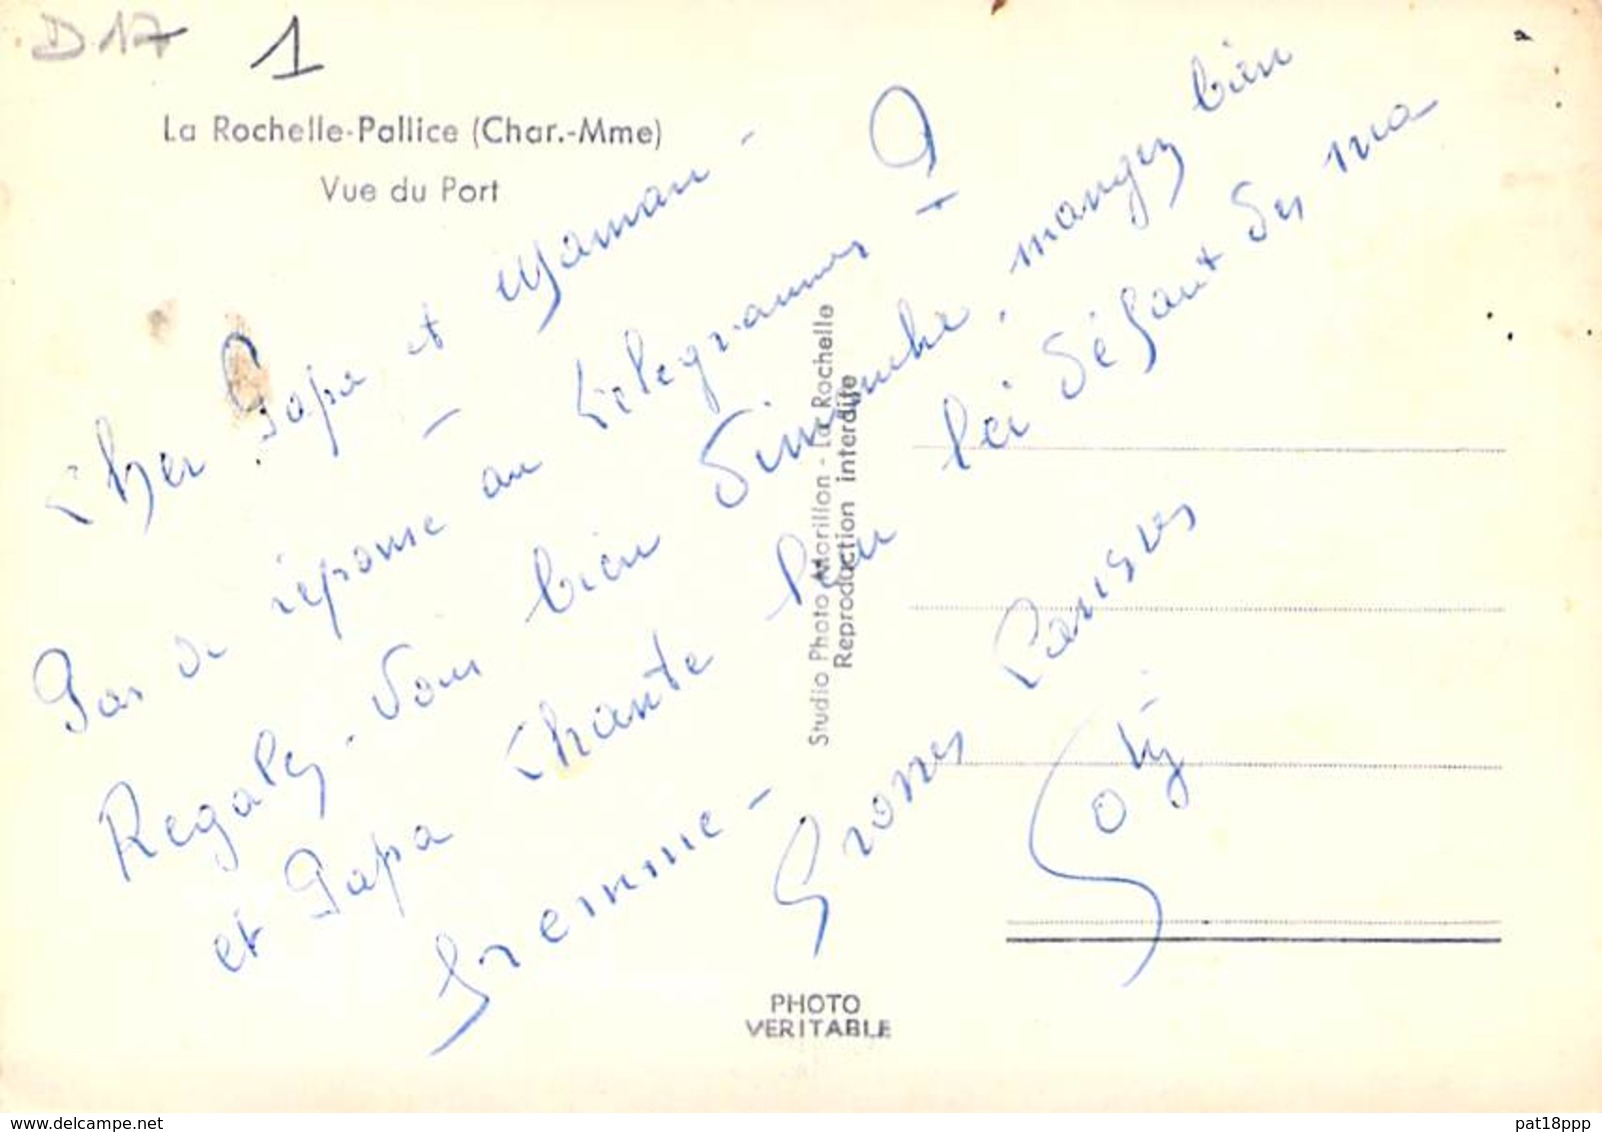 D17 1
La Rochelle-Pallice (Char.-Mme)
Vue du Port
Cher Papa et Maman -
Pas de réponse au télégrammes ?
Regalez-vous bien Dimanche, mangez bien
et Papa chante
femme -
Grosses
PHOTO
VERITABLE
Studio Photo Morillon - La Rochelle
Reproduction interdite
pat18ppp
www.delcampe.net